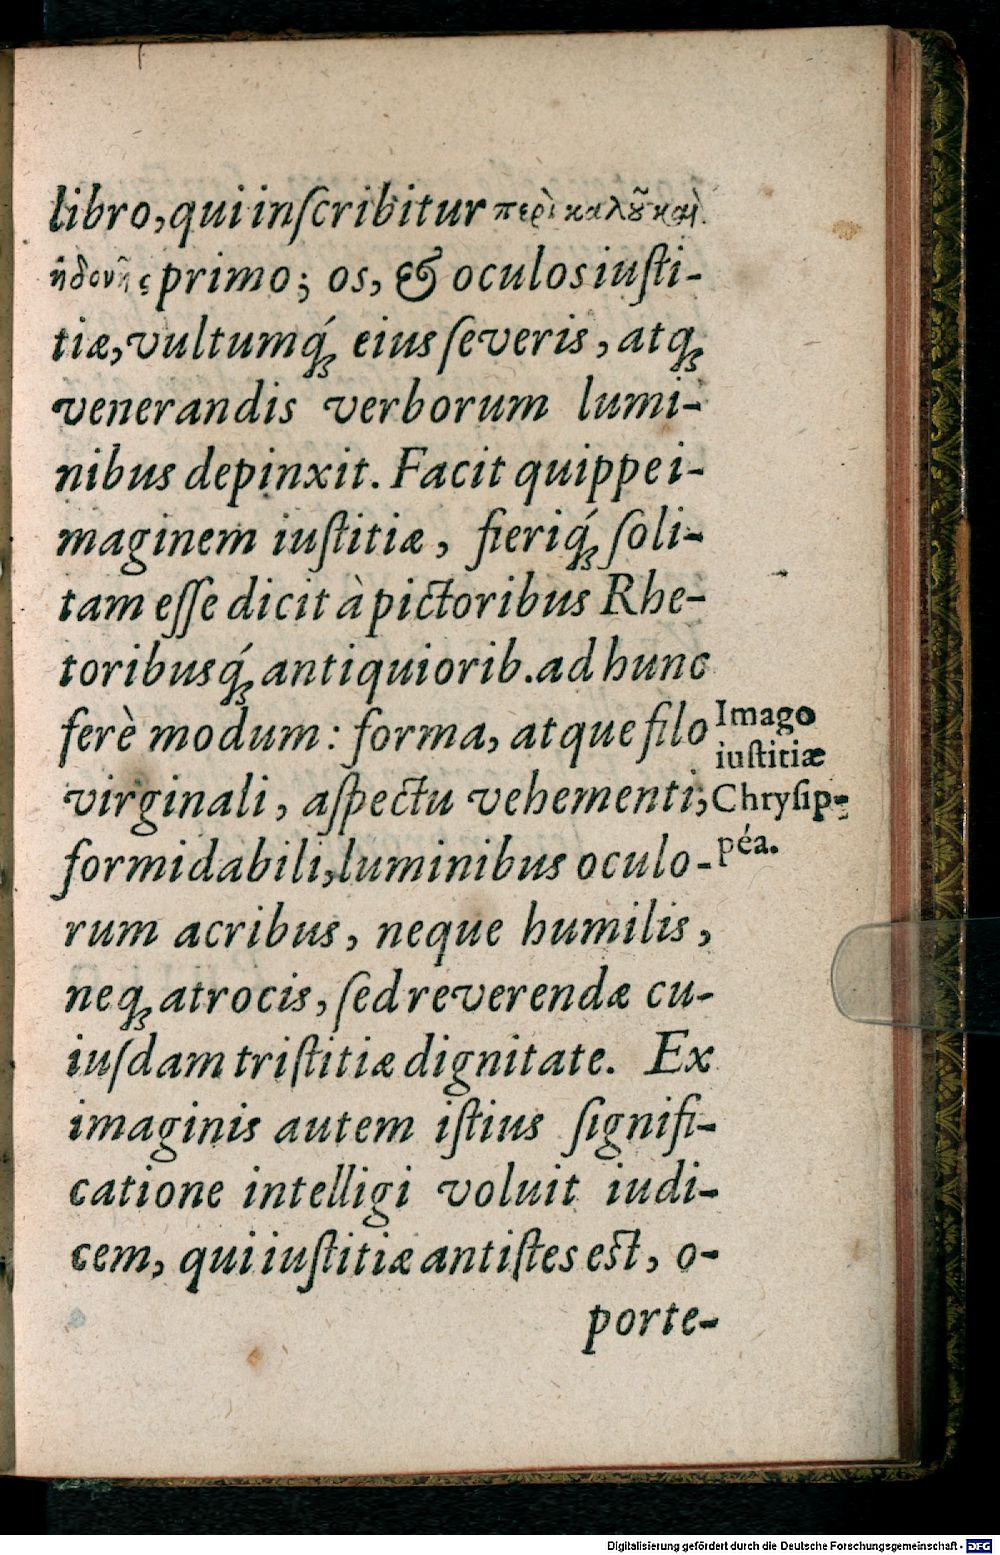 libro, qui inſcribitur περὶ καλοῦ καὶ
ἡδονῆς primo; os, & oculos iuſti-
tiæ, vultumq́; eius ſeveris, atq;
venerandis verborum lumi-
nibus depinxit. Facit quippe i-
maginem iuſtitiæ, fieriq́; ſoli-
tam eſſe dicit à pictoribus Rhe-
toribusq́; antiquiorib. ad hunc
ferè modum: forma, atque filo
virginali, aſpectu vehementi,
formidabili, luminibus oculo-
rum acribus, neque humilis,
neq; atrocis, ſed reverendæ cu-
iuſdam triſtitiæ dignitate. Ex
imaginis autem iſtius ſignifi-
catione intelligi voluit iudi-
cem, qui iuſtitiæ antiſtes eſt, o-
porte-
Imago
iuſtitiæ
Chryſip-
péa.
Digitalisierung gefördert durch die Deutsche Forschungsgemeinschaft - DFG